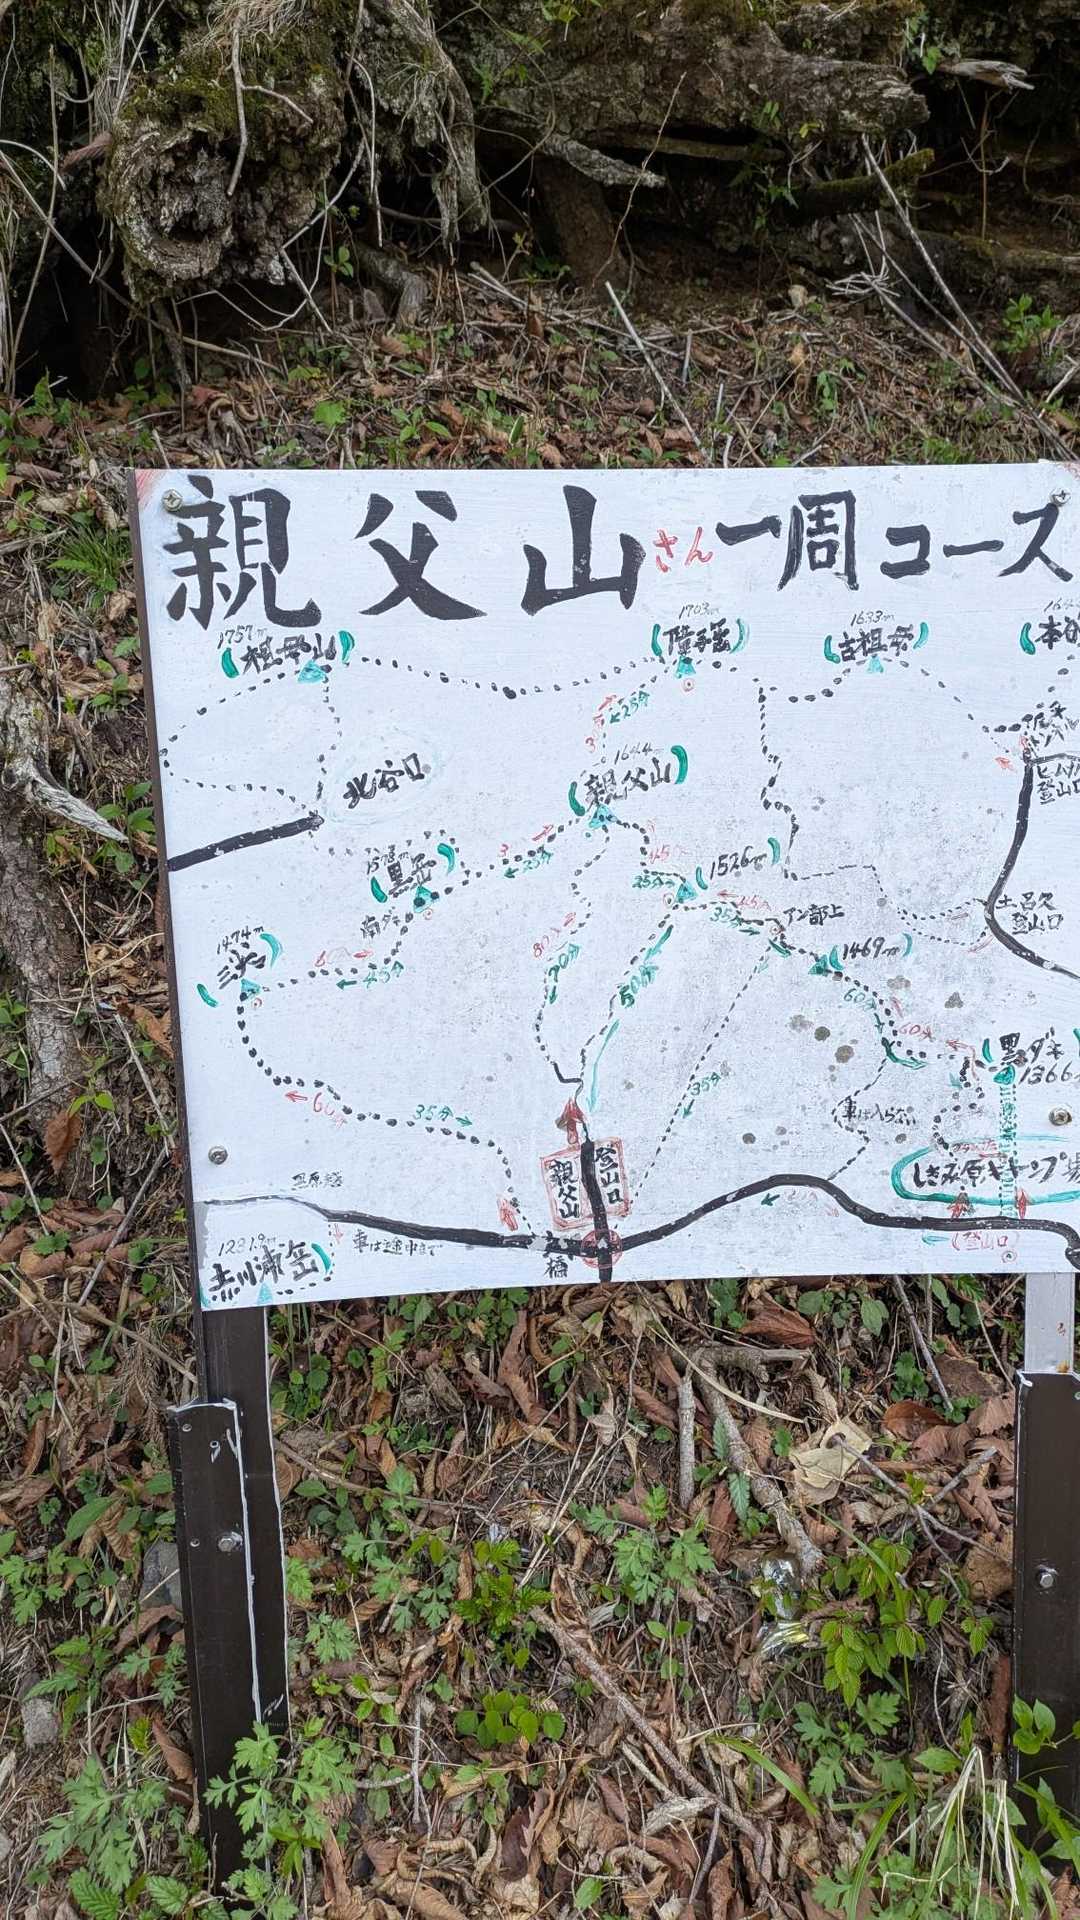 親父山さん一周コース
1757m
祖母山
1703m
障子岳
1633m
古祖母
本谷
25分
1644m
親父山
北谷口
登山口
1578m
黒岳
25分
45分
25分
1526m
45分
35分
アン部上
土呂久
登山口
1474m
三尖
60分
45分
80分
70分
50分
1469m
60分
60分
黒ダキ
1366
60分
35分
35分
車は入らない
しきみ原キャンプ場
親父山
登山口
黒原越
車は途中まで
橋
(登山口)
1231.9m
赤川浦岳